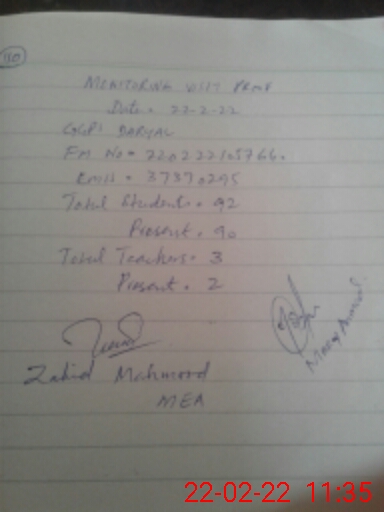 150
MONITORING VISIT PROOF
Date = 22-2-22
GGPS DARYAL
FM No = 220222105766.
Emis = 37370295
Total Students = 92
Present = 90
Total Teachers = 3
Present = 2
Zahid Mahmood
MEA
22-02-22 11:35